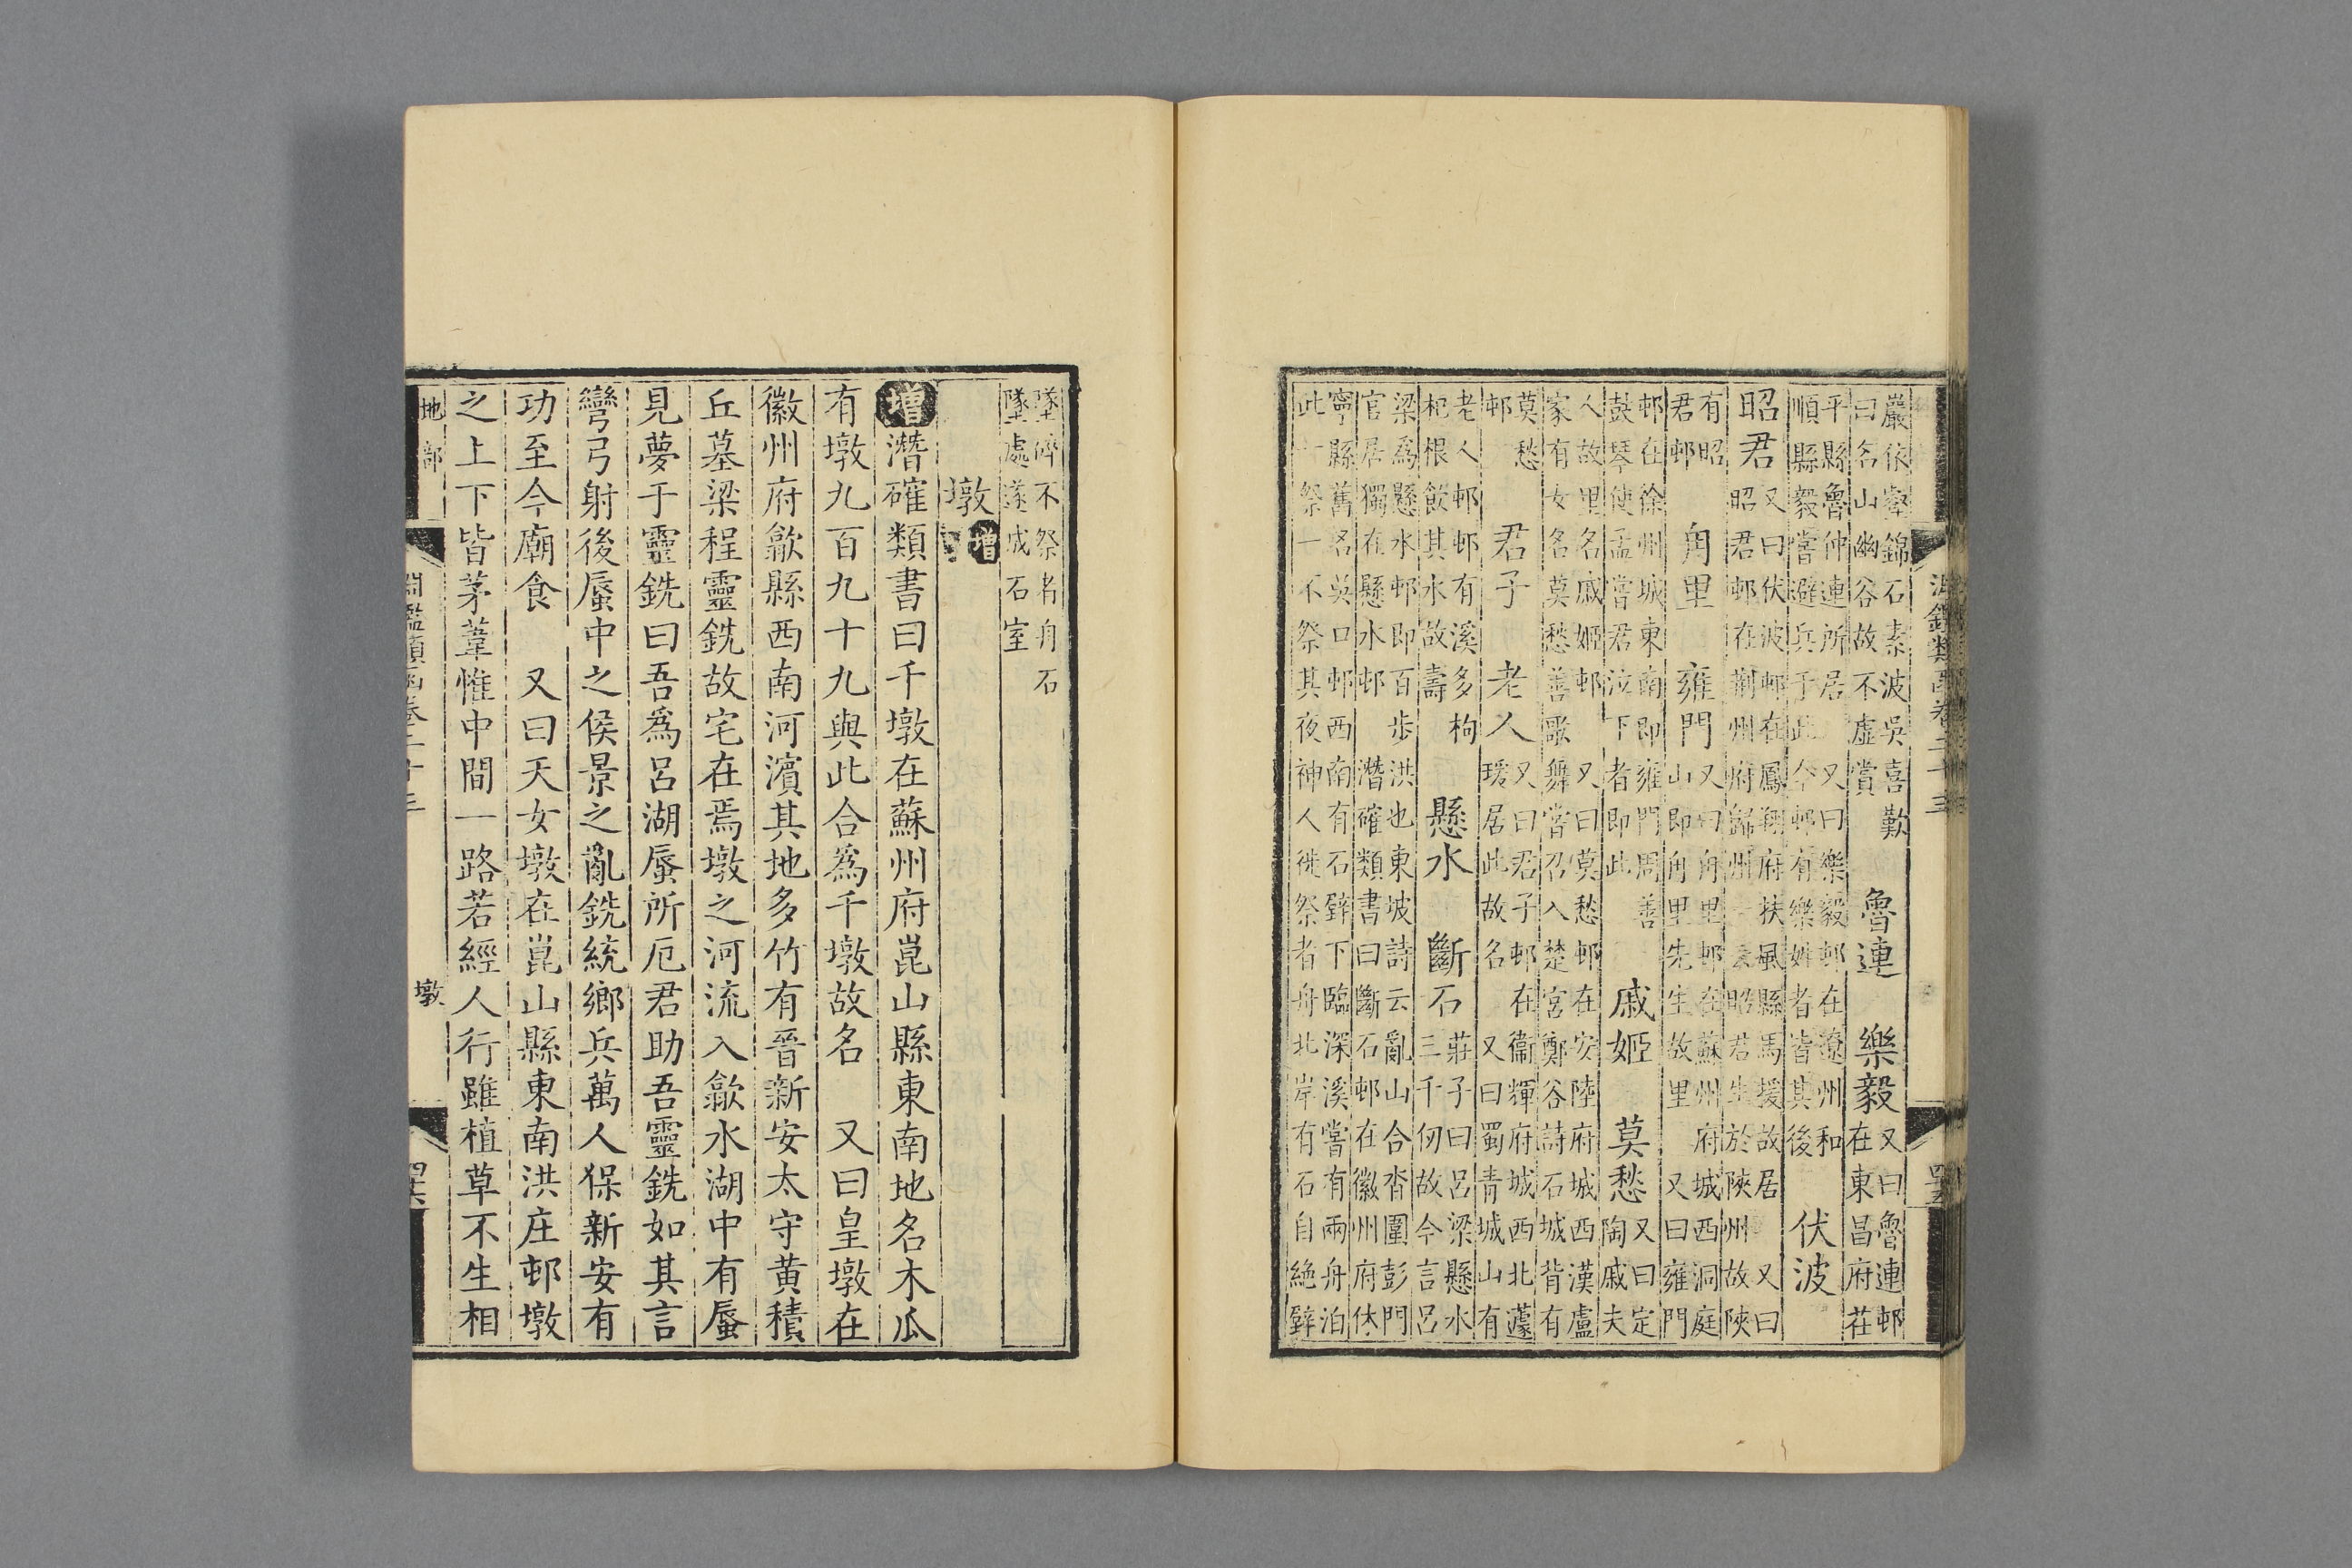 淵鑑類函卷二十三
嚴依壑錦石素波吳喜歎
曰名山幽谷故不虛賞
魯連 樂毅
又曰魯連邨
在東昌府茌
平縣魯仲連所居 又曰樂毅邨在遼州和
順縣毅嘗避兵于此今邨有樂姓者皆其後
伏波
昭君
又曰伏波邨在鳳翔府扶風縣馬援故居 又曰
昭君邨在荊州府歸州一云昭君生於陝州故陝
有昭
君邨
甪里 雍門
又曰甪里邨在蘇州府城西洞庭
山即甪里先生故里 又曰雍門
邨在徐州城東南即雍門周善
鼓琴使孟嘗君泣下者即此
戚姬 莫愁
又曰定
陶戚夫
人故里名戚姬邨 又曰莫愁邨在安陸府城西漢盧
家有女名莫愁善歌舞嘗召入楚宮鄭谷詩石城昔有
莫愁
邨
君子 老人
又曰君子邨在衞輝府城西北蘧
瑗居此故名 又曰蜀青城山有
老人邨邨有溪多枸
杞根飲其水故壽
懸水 斷石
莊子曰呂梁懸水
三千仞故今言呂
梁爲懸水邨即百步洪也東坡詩云亂山合沓圍彭門
官居獨在懸水邨 潛確類書曰斷石邨在徽州府休
寧縣舊名吳口邨西南有石壁下臨深溪嘗有兩舟泊
此一祭一不祭其夜神人徙祭者舟北岸有石自絶壁
墜濟不祭者舟石
墜處遂成石室
墩 增
增潛確類書曰千墩在蘇州府崑山縣東南地名木瓜
有墩九百九十九與此合爲千墩故名 又曰皇墩在
徽州府歙縣西南河濱其地多竹有晉新安太守黃積
丘墓梁程靈銑故宅在焉墩之河流入歙水湖中有蜃
見夢于靈銑曰吾爲呂湖蜃所厄君助吾靈銑如其言
彎弓射後蜃中之侯景之亂銑統鄉兵萬人保新安有
功至今廟食 又曰天女墩在崑山縣東南洪庄邨墩
之上下皆茅葦惟中間一路若經人行雖植草不生相
地部 淵鑑類函卷二十三 墩